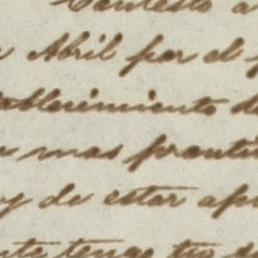 Contesto a
Abril por el
ablecimiento d
a mas pronti
y de estar ap
nte tengo